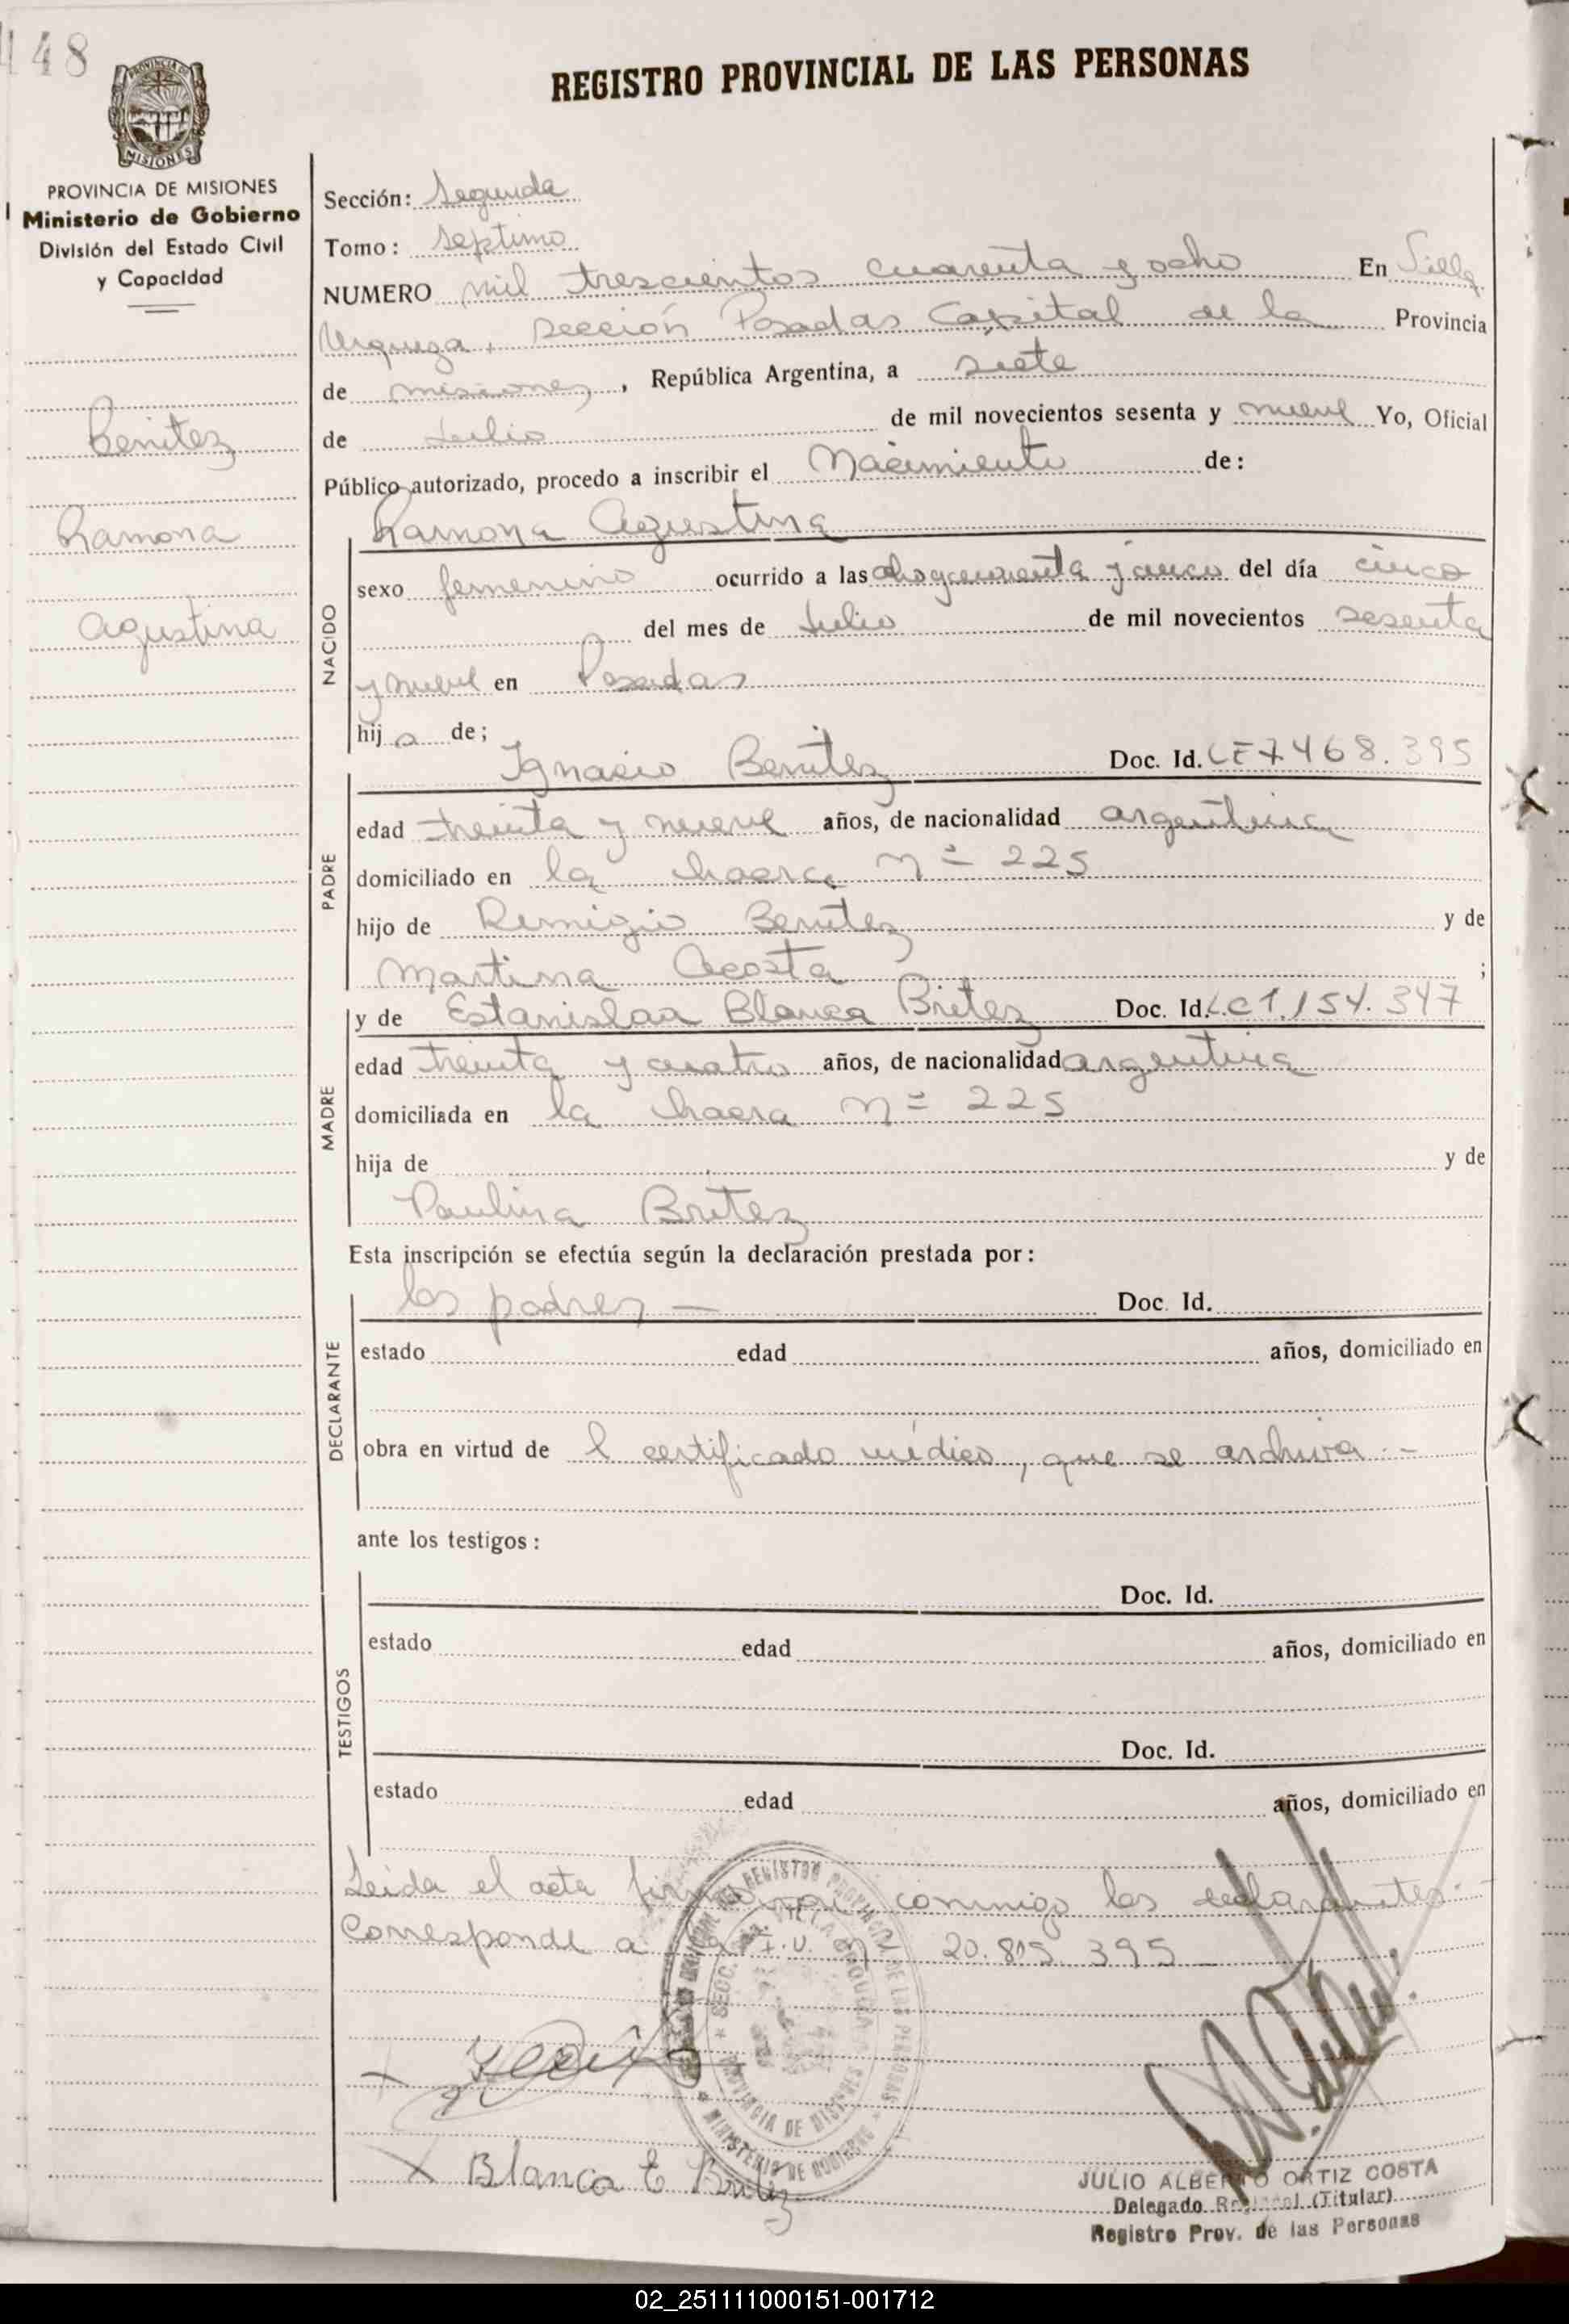 148
REGISTRO PROVINCIAL DE LAS PERSONAS
PROVINCIA DE MISIONES
MISIONES
PROVINCIA DE MISIONES
Ministerio de Gobierno
División del Estado Civil
y Capacidad
Benitez
Ramona
Agustina
Sección: Segunda
Tomo: Septimo
NUMERO mil trescientos cuarenta y ocho En Villa
Urquiza, Sección Posadas Capital de la Provincia
de misiones, República Argentina, a siete
de Julio de mil novecientos sesenta y nueve Yo, Oficial
Público autorizado, procedo a inscribir el Nacimiento de:
NACIDO
Ramona Agustina
sexo femenino ocurrido a las ocho y cuarenta y cinco del día cinco
del mes de Julio de mil novecientos sesenta
y nueve en Posadas
hija de;
PADRE
Ignacio Benitez Doc. Id. LE 7468.395
edad treinta y nueve años, de nacionalidad argentina
domiciliado en la chacra nº 225
hijo de Remigio Benitez y de
Martina Acosta ;
MADRE
y de Estanislaa Blanca Britez Doc. Id. LC 1.154.347
edad treinta y cuatro años, de nacionalidad argentina
domiciliada en la chacra nº 225
hija de y de
Paulina Britez
Esta inscripción se efectúa según la declaración prestada por:
DECLARANTE
los padres — Doc. Id.
estado edad años, domiciliado en
obra en virtud de l certificado médico, que se archiva.-
ante los testigos:
TESTIGOS
Doc. Id.
estado edad años, domiciliado en
Doc. Id.
estado edad años, domiciliado en
Leida el acta firman conmigo los declarantes.-
Corresponde a la M.I.U. nº 20.805.395
Blanca E Britez
REGISTRO PROVINCIAL DE LAS PERSONAS
MINISTERIO DE GOBIERNO
PROVINCIA DE MISIONES
JULIO ALBERTO ORTIZ COSTA
Delegado Regional (Titular)
Registro Prov. de las Personas
02_251111000151-001712